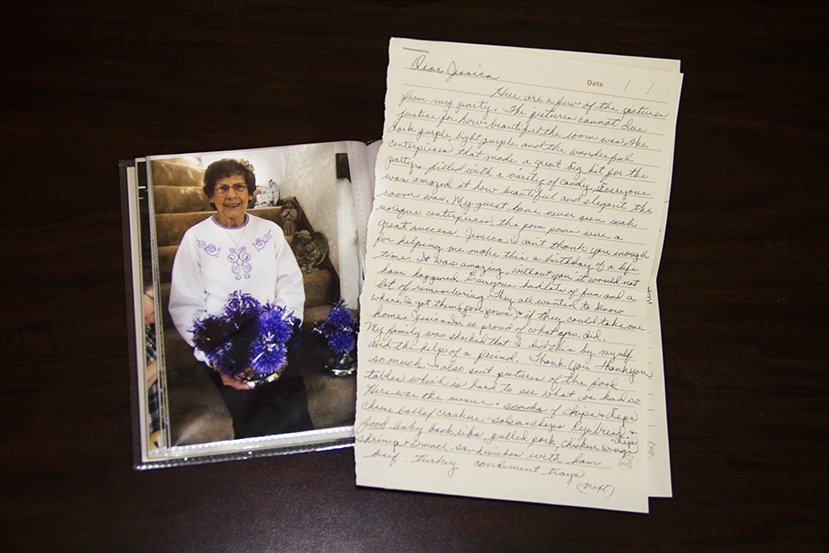 Dear Jessica
Date / /
Here are a few of the pictures
from my party. The pictures cannot due
justice for how beautiful the room was. The
dark purple, light purple and the wonderful
centerpieces that made a great big hit for the
party, filled with a variety of candy. Everyone
was amazed at how beautiful and elegant the
room was. My guest have never seen such
unique centerpieces, the pom poms were a
great success. Jessica I can't thank you enough
for helping me make this a birthday of a life
time. It was amazing, without you it would not
have happened. Everyone had lots of fun and a
lot of remembering. They all wanted to know
where I got them (pom poms) & if they could take one
home. Jessica I'm so proud of what you did.
My family was shocked that I did this by myself
and the help of a friend. Thank You, Thank you
so much. I also sent pictures of the food
tables which is hard to see what we had so
Here was the menu. snacks of chips & dips
cheese balls/crackers salsa & chips rye bread &
dip
food baby back ribs, pulled pork, chicken wings
shrimp & small sandwiches with ham
beef, turkey condiment trays
(next)